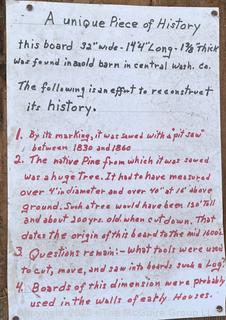 A unique Piece of History
this board 32" wide - 19'4" Long - 1⅞ Thick
was found in an old barn in central Wash. Co.
The following is an effort to reconstruct
its history.
1. By its marking, it was sawed with a "pit saw"
between 1830 and 1860
2. The native Pine from which it was sawed
was a huge Tree. It had to have measured
over 4' in diameter and over 40" at 16' above
ground. Such a tree would have been 120' Tall
and about 200 yrs. old when cut down. That
dates the origin of this board to The mid 1600's.
3 Questions remain:- What tools were used
to cut, move, and saw into boards such a Log?
4. Boards of this dimension were probably
used in the walls of early Houses.